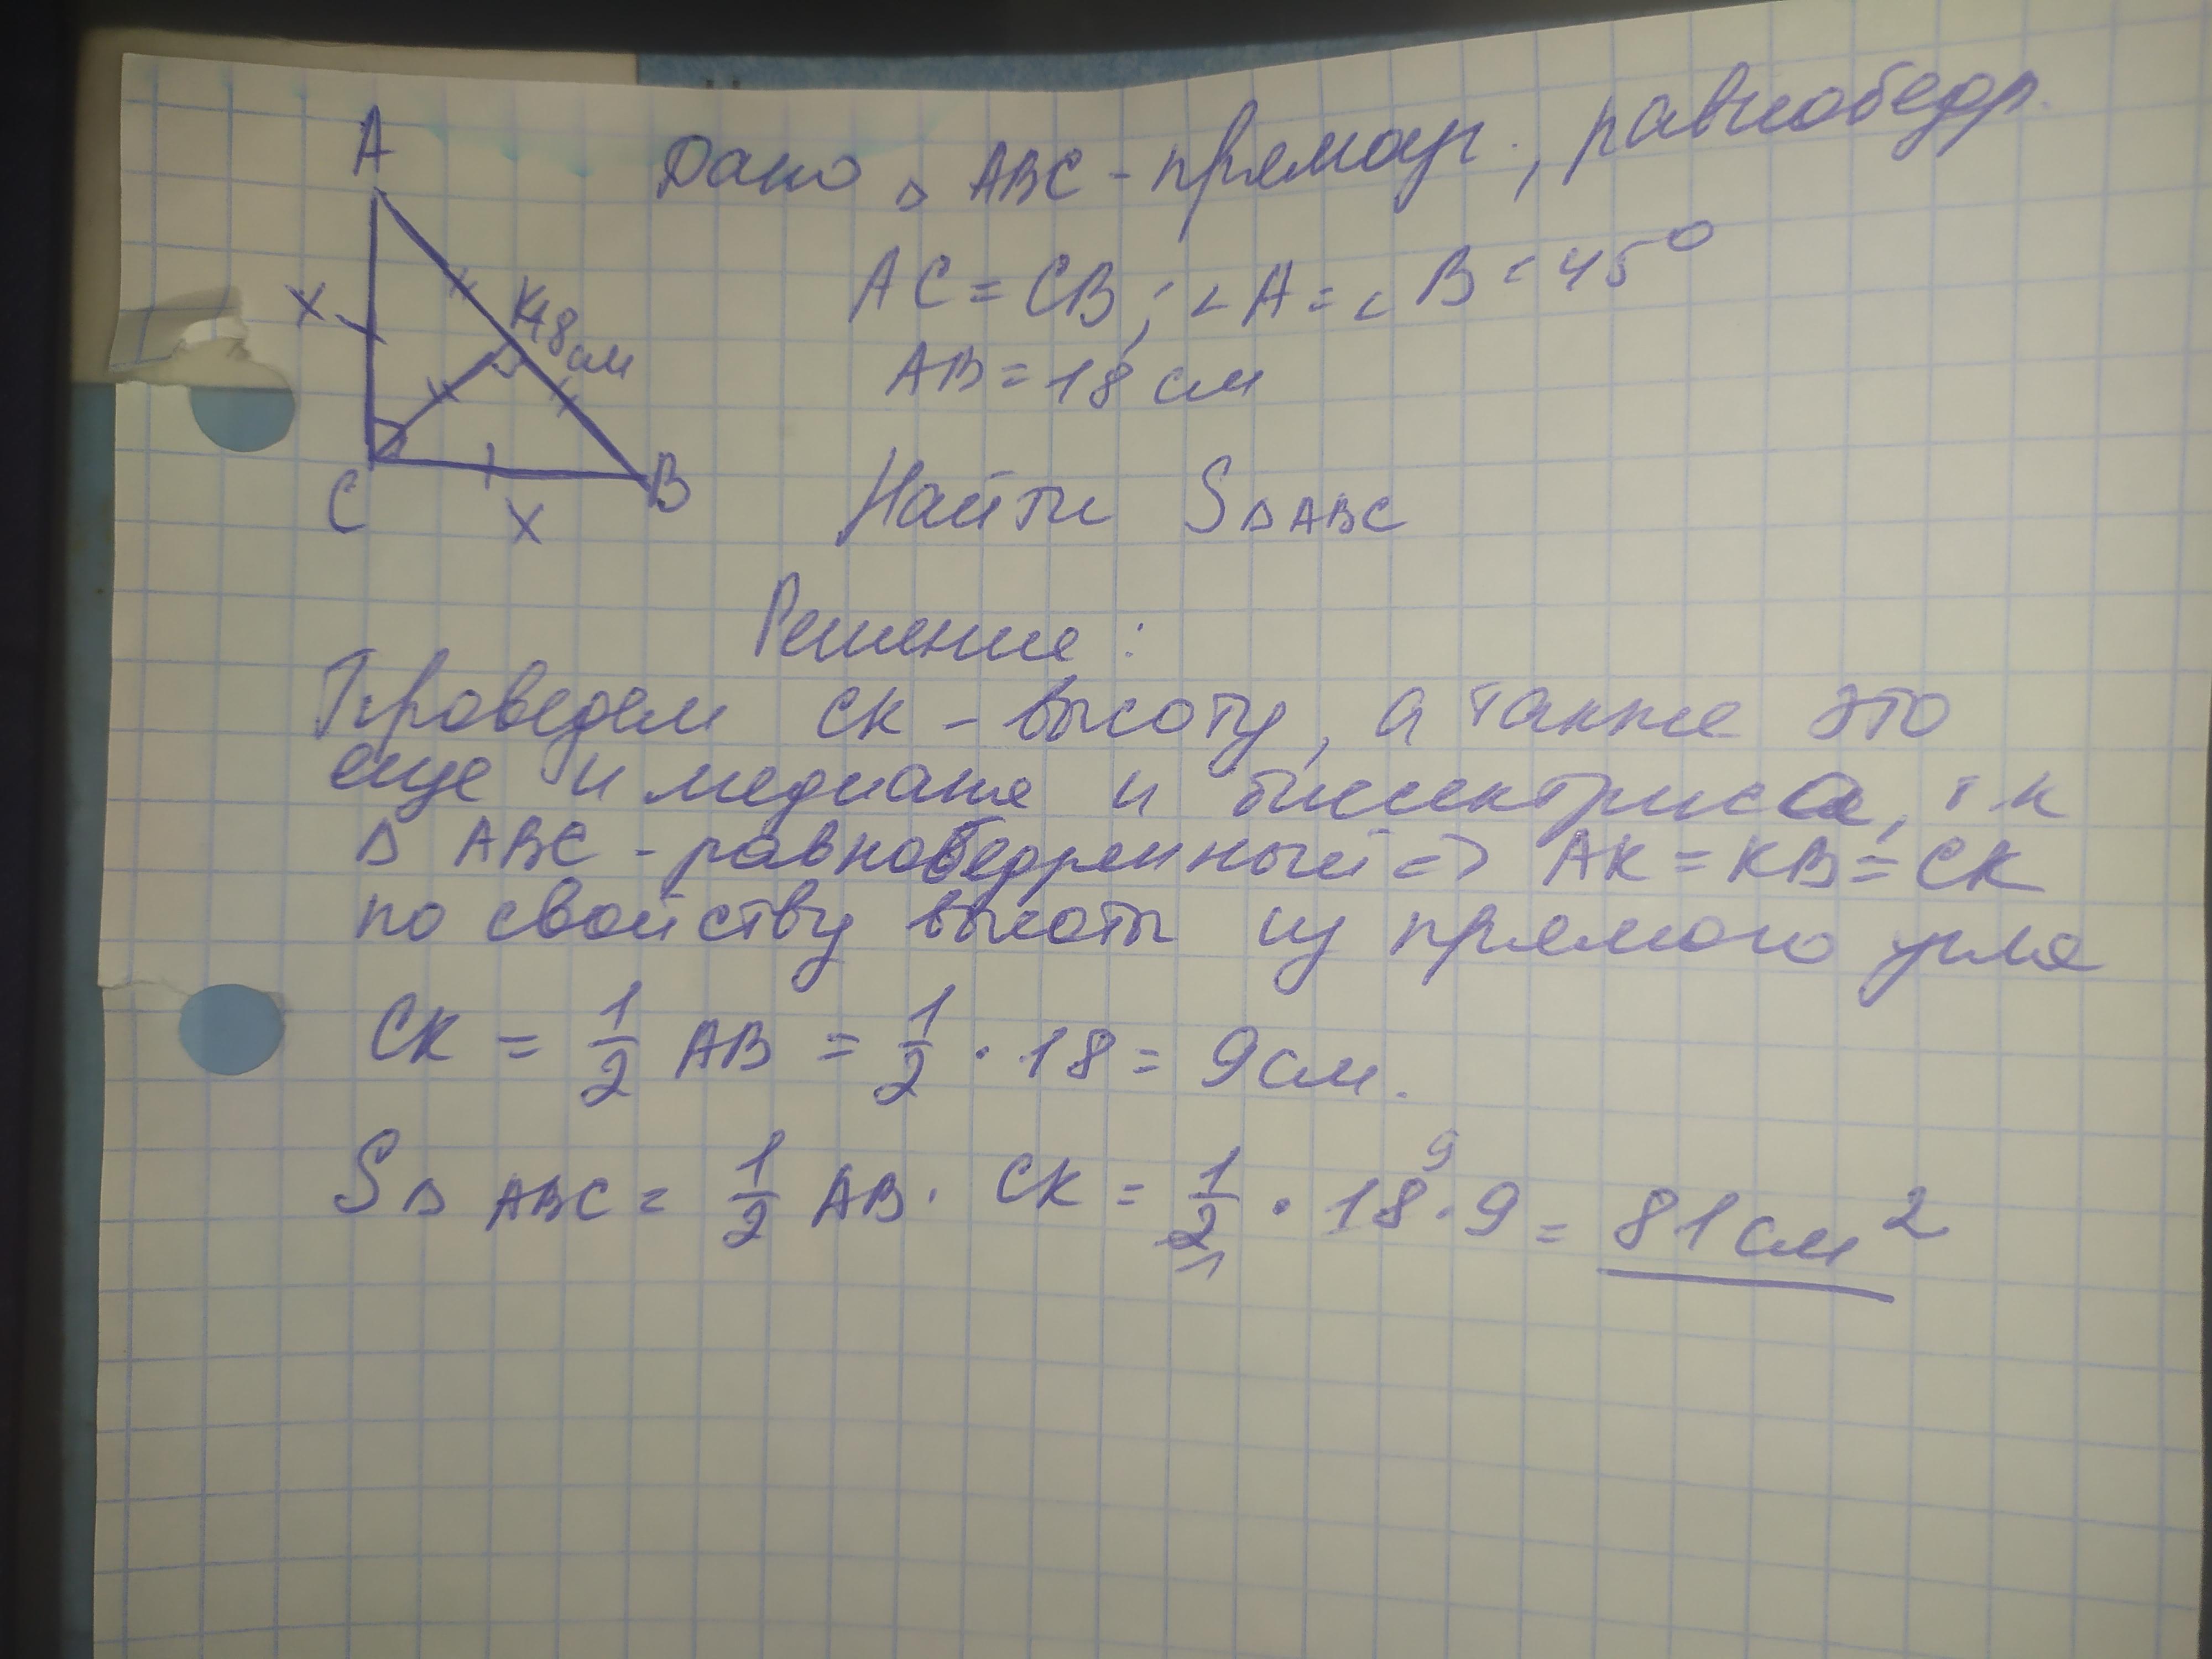 A
Дано △ ABC - прямоуг., равнобедр.
x
K
18 см
AC = CB; ∠A = ∠B = 45°
AB = 18 см
C
x
B
Найти S△ABC
Решение:
Проведем CK - высоту, а также это
еще и медиана и биссектриса, т к
△ ABC - равнобедренный => AK = KB = CK
по свойству высоты из прямого угла
CK = 1/2 AB = 1/2 · 18 = 9 см.
S△ ABC = 1/2 AB · CK = 1/2 · 18 · 9 = 81 см²
9
1